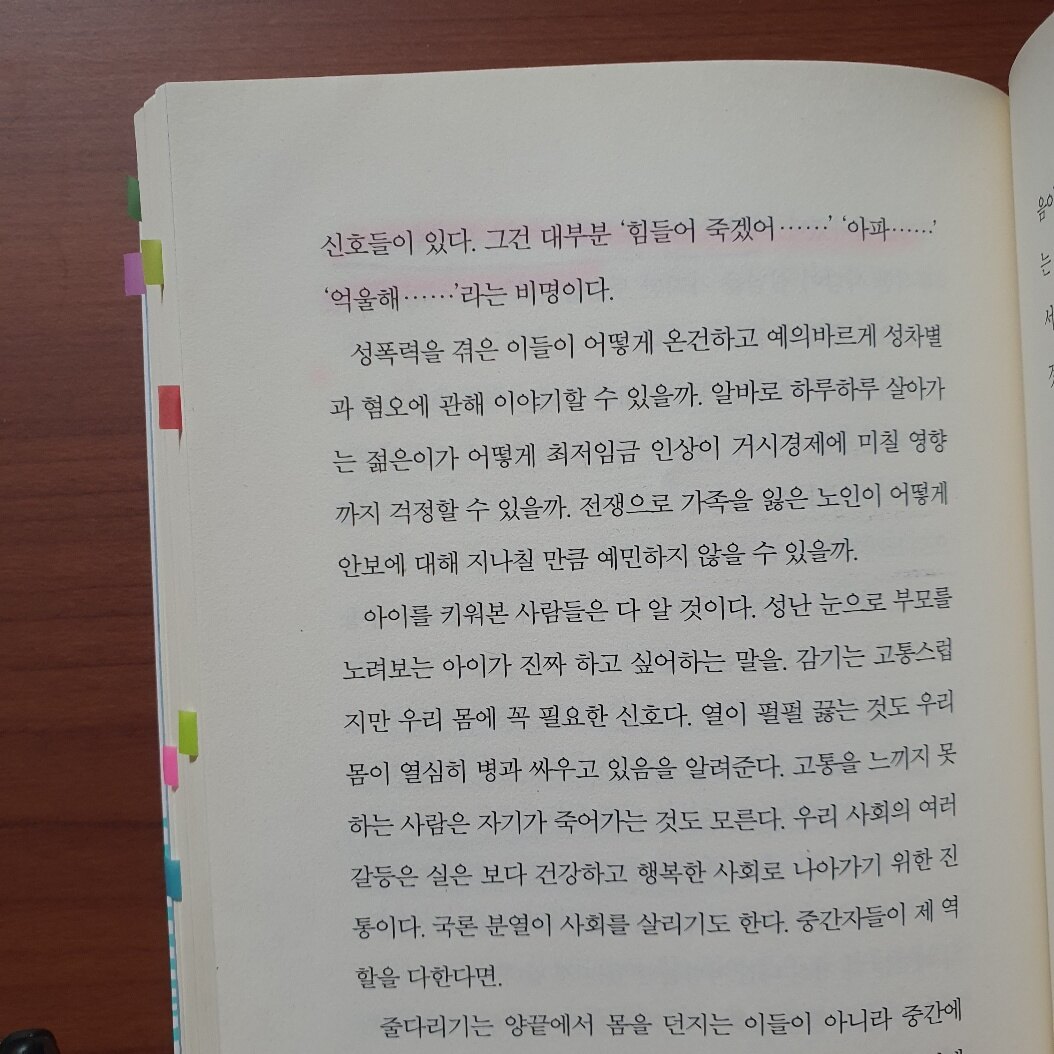 신호들이 있다. 그건 대부분 ‘힘들어 죽겠어……’ ‘아파……’
‘억울해……’라는 비명이다.
성폭력을 겪은 이들이 어떻게 온건하고 예의바르게 성차별
과 혐오에 관해 이야기할 수 있을까. 알바로 하루하루 살아가
는 젊은이가 어떻게 최저임금 인상이 거시경제에 미칠 영향
까지 걱정할 수 있을까. 전쟁으로 가족을 잃은 노인이 어떻게
안보에 대해 지나칠 만큼 예민하지 않을 수 있을까.
아이를 키워본 사람들은 다 알 것이다. 성난 눈으로 부모를
노려보는 아이가 진짜 하고 싶어하는 말을. 감기는 고통스럽
지만 우리 몸에 꼭 필요한 신호다. 열이 펄펄 끓는 것도 우리
몸이 열심히 병과 싸우고 있음을 알려준다. 고통을 느끼지 못
하는 사람은 자기가 죽어가는 것도 모른다. 우리 사회의 여러
갈등은 실은 보다 건강하고 행복한 사회로 나아가기 위한 진
통이다. 국론 분열이 사회를 살리기도 한다. 중간자들이 제 역
할을 다한다면.
줄다리기는 양끝에서 몸을 던지는 이들이 아니라 중간에
는